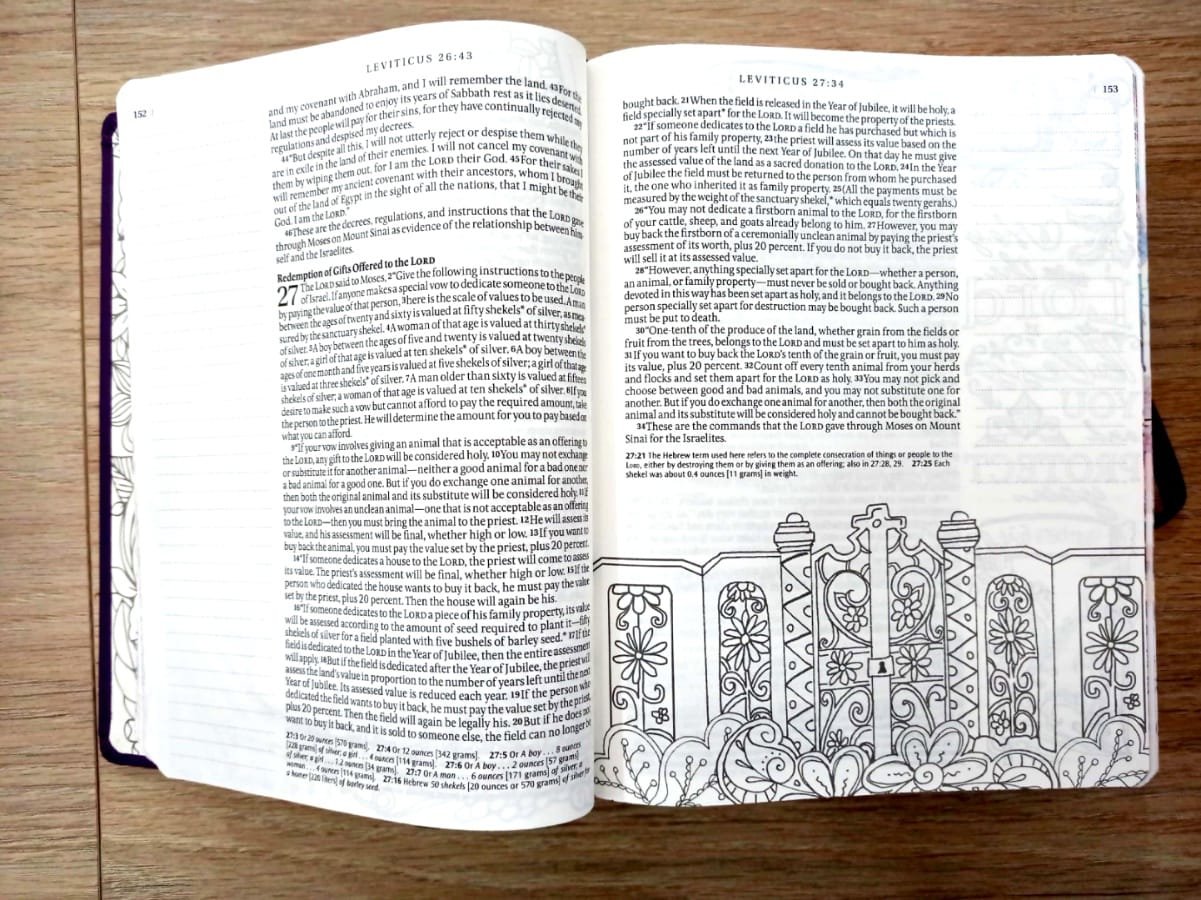 LEVITICUS 26:43
152
and my covenant with Abraham, and I will remember the land. 43For the
land must be abandoned to enjoy its years of Sabbath rest as it lies deserted.
At last the people will pay for their sins, for they have continually rejected my
regulations and despised my decrees.
44"But despite all this, I will not utterly reject or despise them while they
are in exile in the land of their enemies. I will not cancel my covenant with
them by wiping them out, for I am the LORD their God. 45For their sakes I
will remember my ancient covenant with their ancestors, whom I brought
out of the land of Egypt in the sight of all the nations, that I might be their
God. I am the LORD."
46These are the decrees, regulations, and instructions that the LORD gave
through Moses on Mount Sinai as evidence of the relationship between him-
self and the Israelites.
Redemption of Gifts Offered to the LORD
27 The LORD said to Moses, 2"Give the following instructions to the people
of Israel. If anyone makes a special vow to dedicate someone to the LORD
by paying the value of that person, 3here is the scale of values to be used. A man
between the ages of twenty and sixty is valued at fifty shekels* of silver, as mea-
sured by the sanctuary shekel. 4A woman of that age is valued at thirty shekels*
of silver. 5A boy between the ages of five and twenty is valued at twenty shekels
of silver; a girl of that age is valued at ten shekels* of silver. 6A boy between the
ages of one month and five years is valued at five shekels of silver; a girl of that age
is valued at three shekels* of silver. 7A man older than sixty is valued at fifteen
shekels of silver; a woman of that age is valued at ten shekels* of silver. 8If you
desire to make such a vow but cannot afford to pay the required amount, take
the person to the priest. He will determine the amount for you to pay based on
what you can afford.
9"If your vow involves giving an animal that is acceptable as an offering to
the LORD, any gift to the LORD will be considered holy. 10You may not exchange
or substitute it for another animal—neither a good animal for a bad one nor
a bad animal for a good one. But if you do exchange one animal for another,
then both the original animal and its substitute will be considered holy. 11If
your vow involves an unclean animal—one that is not acceptable as an offering
to the LORD—then you must bring the animal to the priest. 12He will assess its
value, and his assessment will be final, whether high or low. 13If you want to
buy back the animal, you must pay the value set by the priest, plus 20 percent.
14"If someone dedicates a house to the LORD, the priest will come to assess
its value. The priest's assessment will be final, whether high or low. 15If the
person who dedicated the house wants to buy it back, he must pay the value
set by the priest, plus 20 percent. Then the house will again be his.
16"If someone dedicates to the LORD a piece of his family property, its value
will be assessed according to the amount of seed required to plant it—fifty
shekels of silver for a field planted with five bushels of barley seed.* 17If the
field is dedicated to the LORD in the Year of Jubilee, then the entire assessment
will apply. 18But if the field is dedicated after the Year of Jubilee, the priest will
assess the land's value in proportion to the number of years left until the next
Year of Jubilee. Its assessed value is reduced each year. 19If the person who
dedicated the field wants to buy it back, he must pay the value set by the priest,
plus 20 percent. Then the field will again be legally his. 20But if he does not
want to buy it back, and it is sold to someone else, the field can no longer be
27:3 Or 20 ounces [570 grams]. 27:4 Or 12 ounces [342 grams]. 27:5 Or A boy . . . 8 ounces
[228 grams] of silver; a girl . . . 4 ounces [114 grams]. 27:6 Or A boy . . . 2 ounces [57 grams]
of silver; a girl . . . 1.2 ounces [34 grams]. 27:7 Or A man . . . 6 ounces [171 grams] of silver; a
woman . . . 4 ounces [114 grams]. 27:16 Hebrew 50 shekels [20 ounces or 570 grams] of silver for
a homer [220 liters] of barley seed.
LEVITICUS 27:34
153
bought back. 21When the field is released in the Year of Jubilee, it will be holy, a
field specially set apart* for the LORD. It will become the property of the priests.
22"If someone dedicates to the LORD a field he has purchased but which is
not part of his family property, 23the priest will assess its value based on the
number of years left until the next Year of Jubilee. On that day he must give
the assessed value of the land as a sacred donation to the LORD. 24In the Year
of Jubilee the field must be returned to the person from whom he purchased
it, the one who inherited it as family property. 25(All the payments must be
measured by the weight of the sanctuary shekel,* which equals twenty gerahs.)
26"You may not dedicate a firstborn animal to the LORD, for the firstborn
of your cattle, sheep, and goats already belong to him. 27However, you may
buy back the firstborn of a ceremonially unclean animal by paying the priest's
assessment of its worth, plus 20 percent. If you do not buy it back, the priest
will sell it at its assessed value.
28"However, anything specially set apart for the LORD—whether a person,
an animal, or family property—must never be sold or bought back. Anything
devoted in this way has been set apart as holy, and it belongs to the LORD. 29No
person specially set apart for destruction may be bought back. Such a person
must be put to death.
30"One-tenth of the produce of the land, whether grain from the fields or
fruit from the trees, belongs to the LORD and must be set apart to him as holy.
31If you want to buy back the LORD's tenth of the grain or fruit, you must pay
its value, plus 20 percent. 32Count off every tenth animal from your herds
and flocks and set them apart for the LORD as holy. 33You may not pick and
choose between good and bad animals, and you may not substitute one for
another. But if you do exchange one animal for another, then both the original
animal and its substitute will be considered holy and cannot be bought back."
34These are the commands that the LORD gave through Moses on Mount
Sinai for the Israelites.
27:21 The Hebrew term used here refers to the complete consecration of things or people to the
LORD, either by destroying them or by giving them as an offering; also in 27:28, 29. 27:25 Each
shekel was about 0.4 ounces [11 grams] in weight.